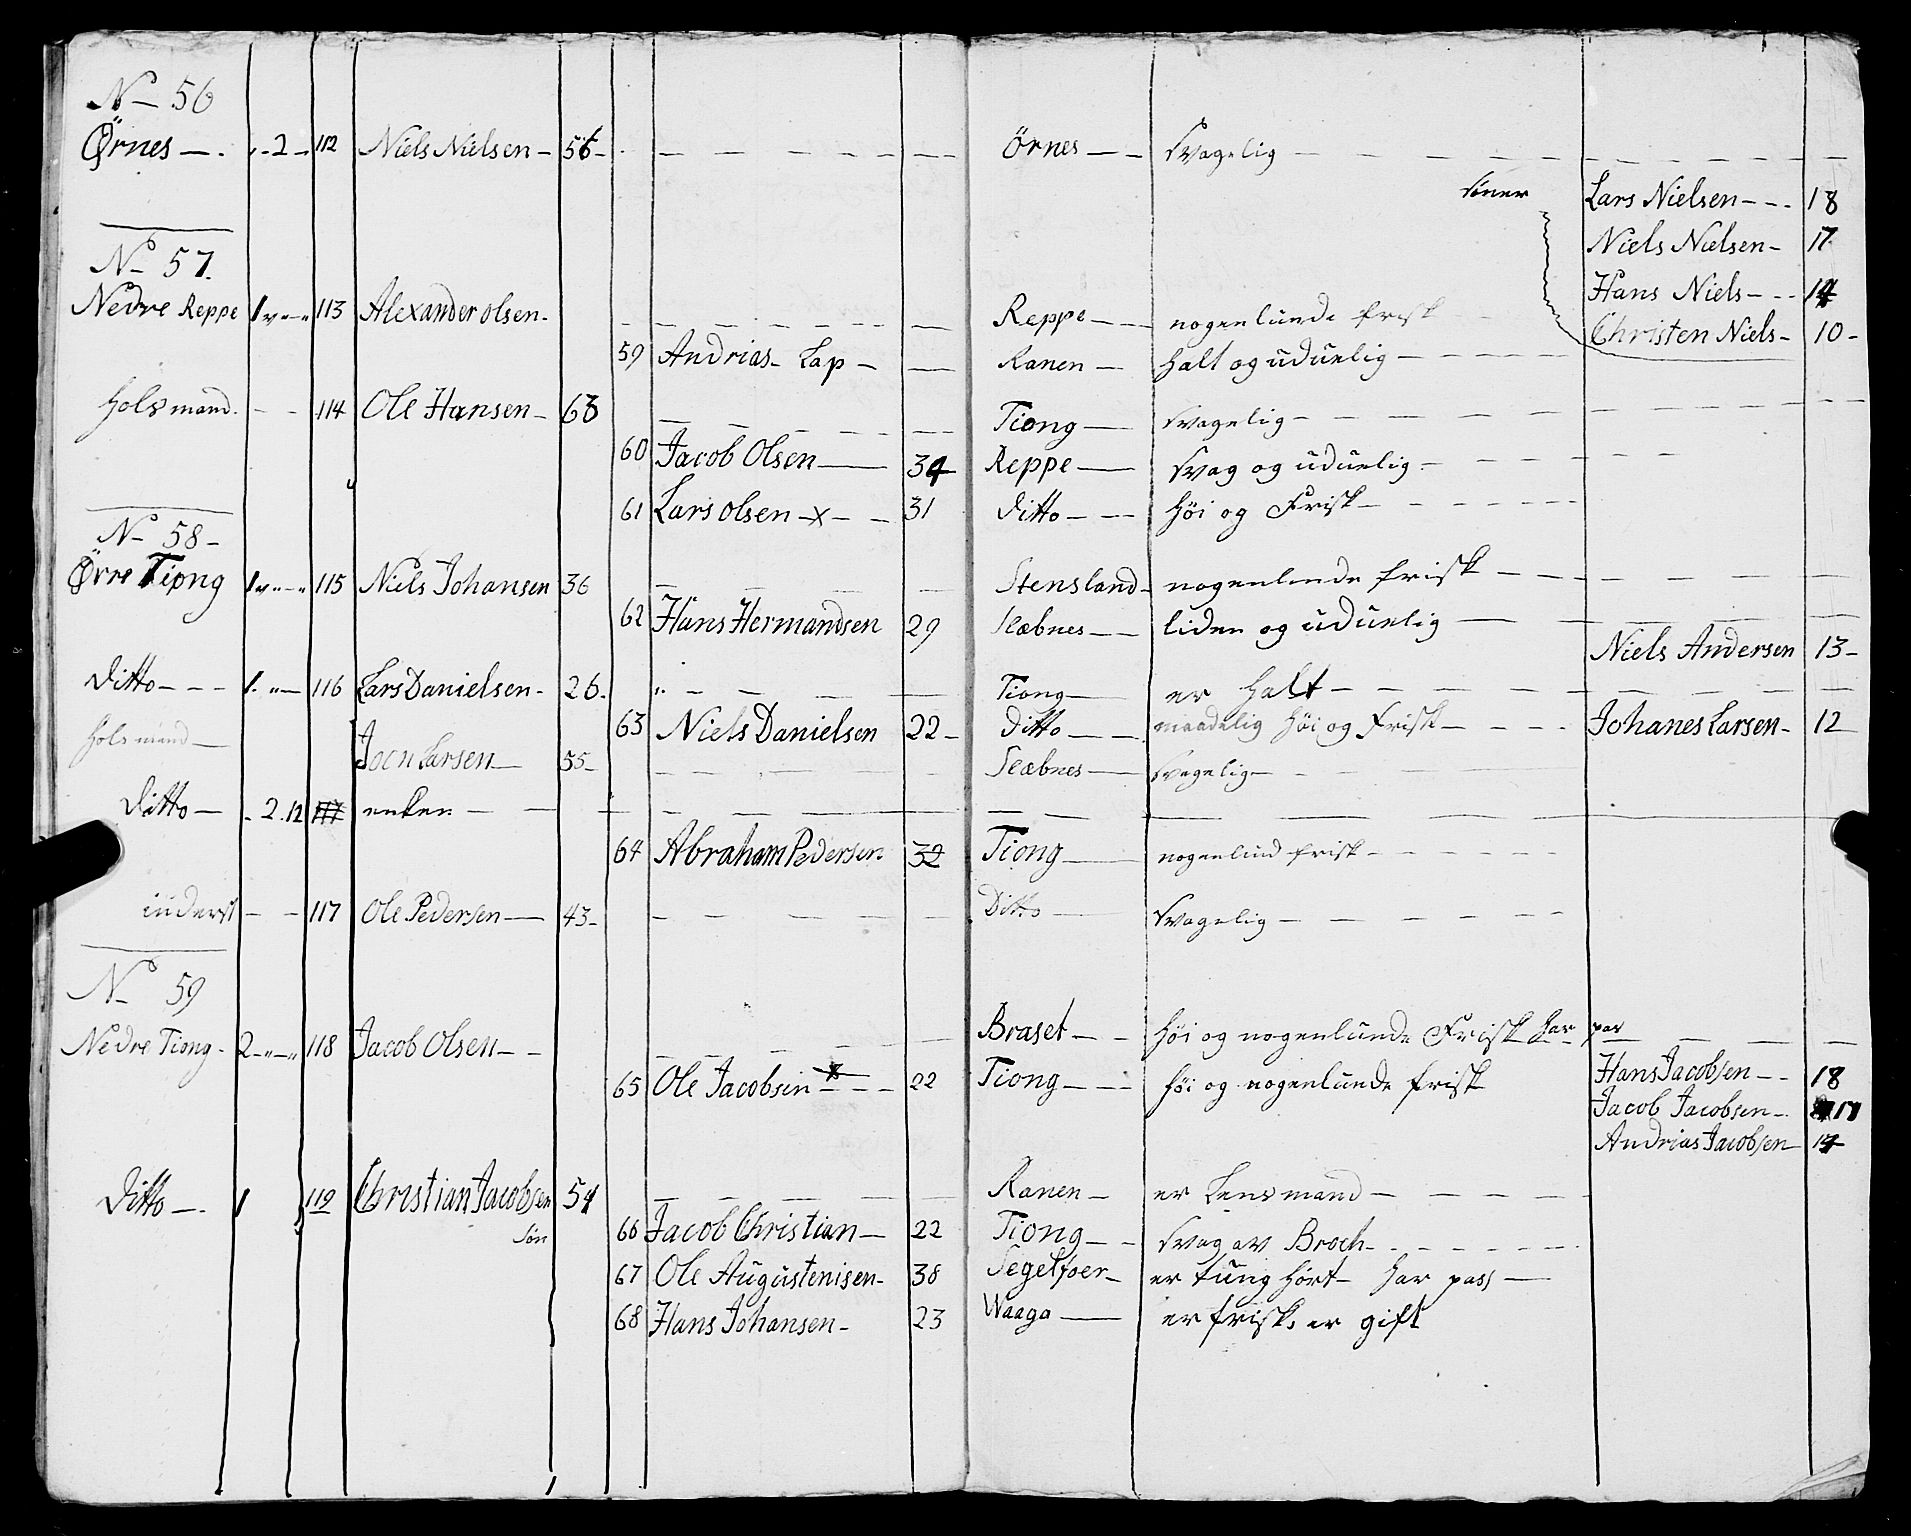 No 56
Ørnes — „ - 2 - 112 Niels Nielsen - 56 - Ørnes — svagelig
sönner Lars Nielsen - - - 18
Niels Nielsen - 17
Hans Niels - - 14
Christen Niels - 10 -
No 57.
Nedre Reppe 1 v „ - „ 113 Alexander Olsen - Reppe — nogenlunde frisk
59 Andrias - Lap - Ranen — halt og uduelig
holsmand - - 114 Ole Hansen - 63 Tiong — svagelig
60 Jacob Olsen — 34 Reppe — svag og uduelig
61 Lars Olsen - x - - 31 ditto - höi og Frisk
No 58 -
Övre Tiong 1 v „ - „ 115 Niels Johansen 36 Stensland - nogenlunde frisk
62 Hans Hermandsen 29 Slæbnes — liden og uduelig
Niels Andersen 13 -
ditto - - - 1 . „ — 116 Lars Danielsen - 26 . Tiong — er halt
63 Niels Danielsen 22 - ditto — maadelig höi og Frisk - Johanes Larsen - 12
holsmand — Joen Larsen — 55 - Slæbnes — svagelig
ditto — - 2 . 12 117 enken
64 Abraham Pedersen 32 Tiong — nogenlund frisk
inderst - - 117 Ole Pedersen — 43 - Ditto — svagelig
No 59
Nedre Tiong - 2 - „ - „ 118 Jacob Olsen - - Braset - - höi og nogenlunde Frisk har pas
65 Ole Jacobsen x - - 22 Tiong - - höi og nogenlunde frisk Hans Jacobsen - - 18
Jacob Jacobsen - 17
Andrias Jacobsen 14
ditto — . 1 119 Christian Jacobsen 54 Ranen - er Lensmand
sön 66 Jacob Christian — 22 Tiong - - svag av Broch
67 Ole Augustenisen - 38 Segelfoer - er tung hört - har pass —
68 Hans Johansen - 23 Waaga — er frisk. er gift